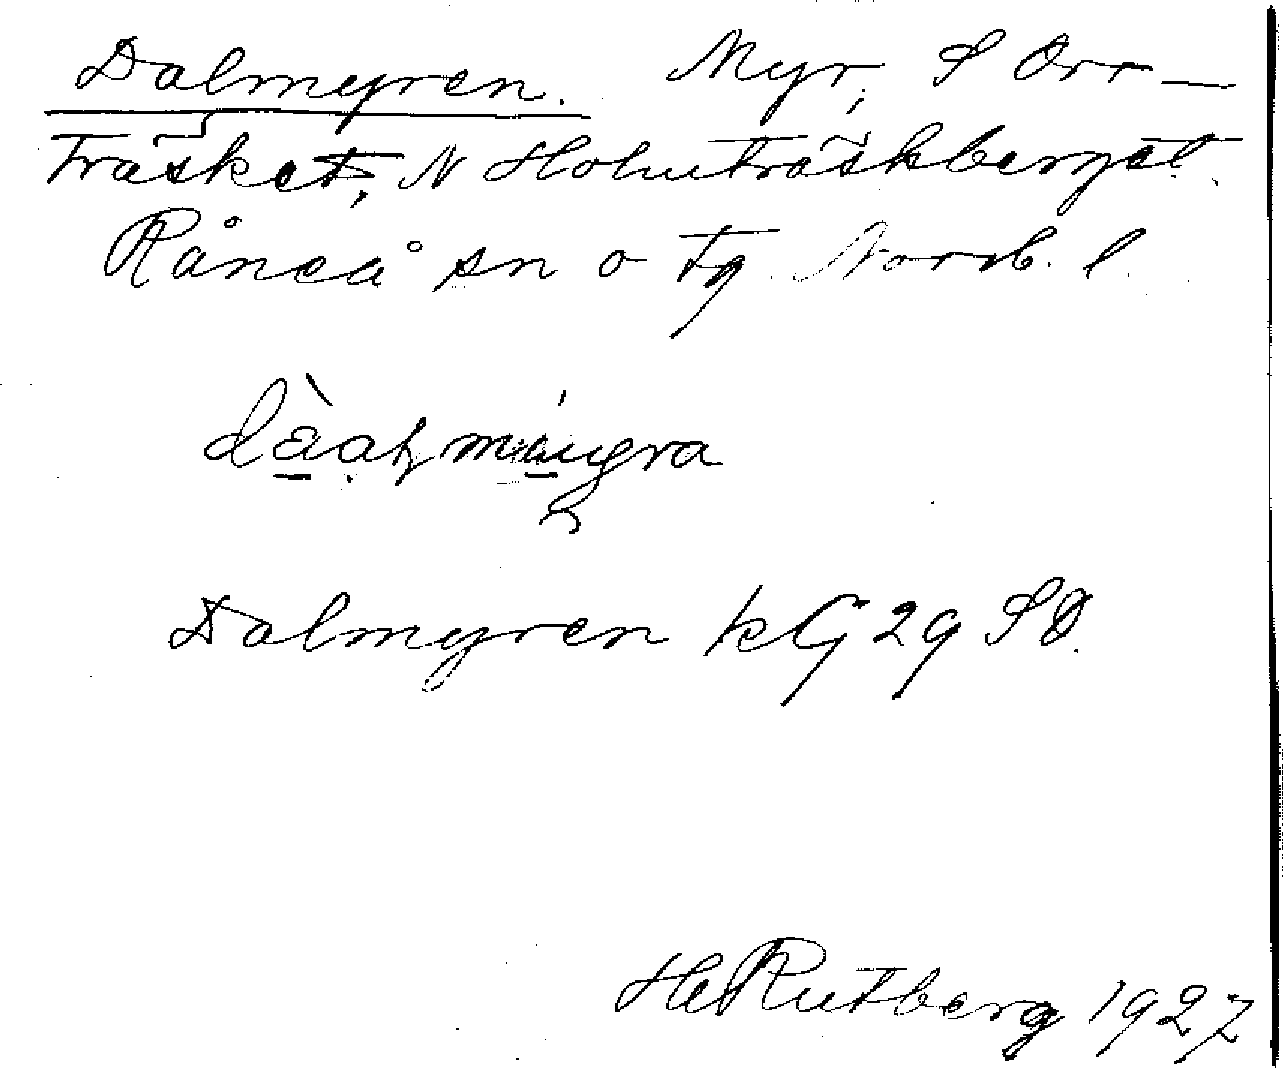 Dalmyren. Myr, S Orr-
träsket, N Holmträskberget.
Råneå sn o tg Norrb. l.
Dalmyren kG 29 SO.
HRutberg 1927